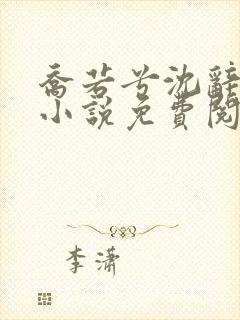 乔若兮沈辞
小说免费阅
李潇